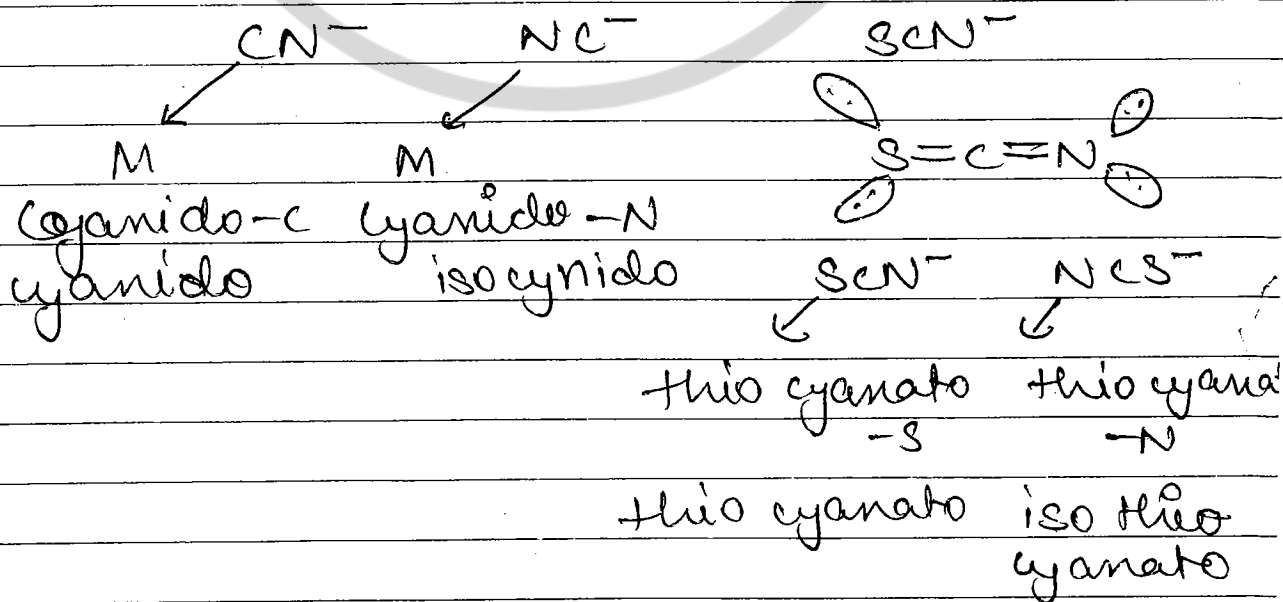 CN⁻ NC⁻ SCN⁻
M M S=C=N
Cyanido-C Cyanido-N
cyanido isocynido SCN⁻ NCS⁻
thio cyanato thio cyana
-S -N
thio cyanato iso thio
cyanato